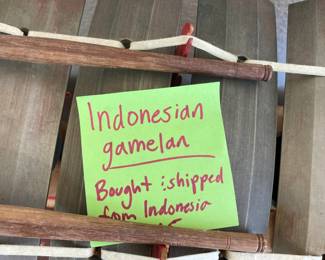 Indonesian
gamelan
Bought & shipped
from Indonesia